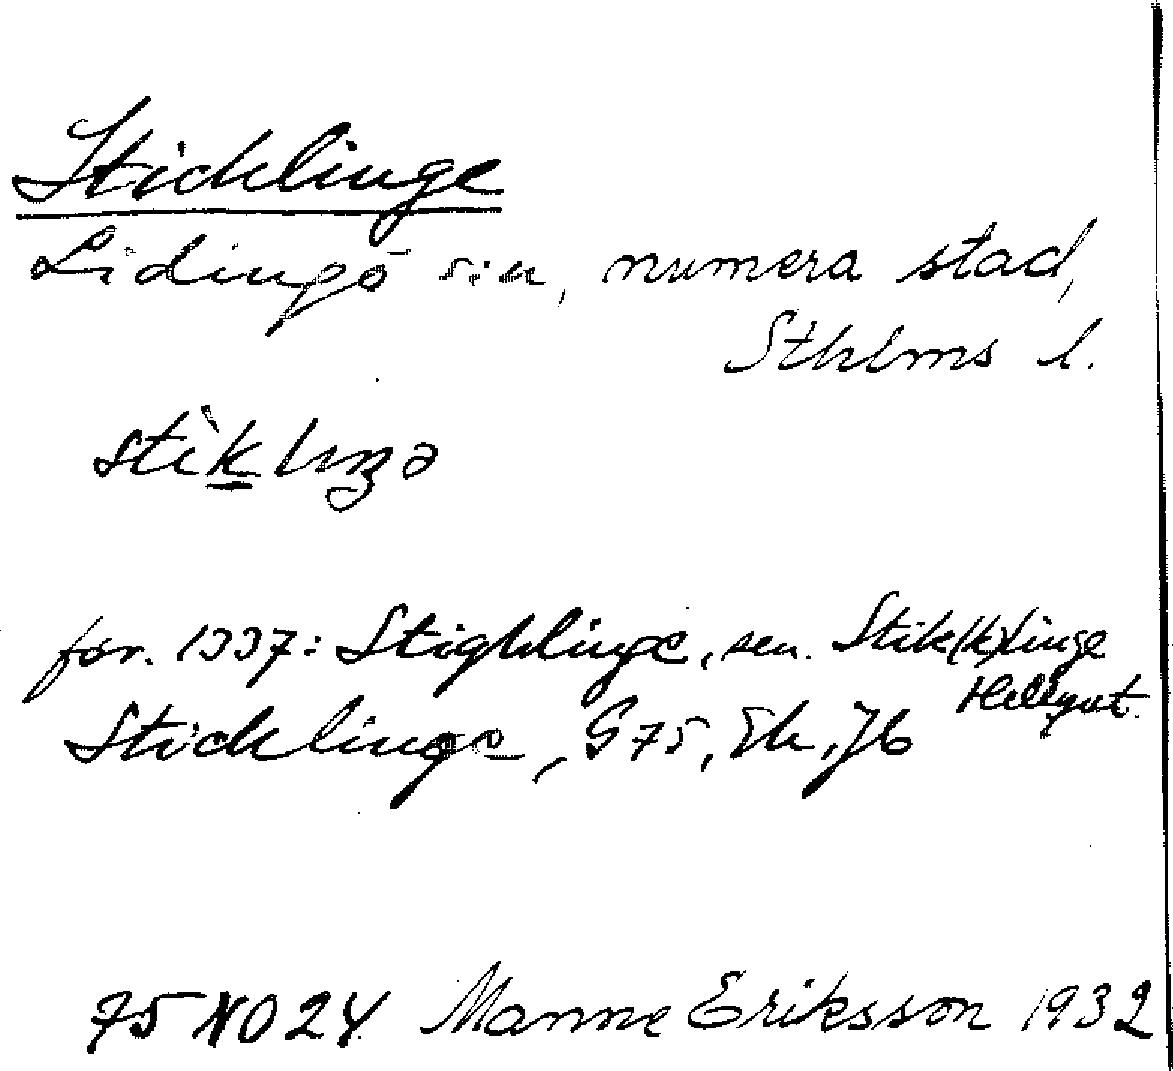 Sticklinge
Lidingö sn, numera stad,
Sthlms l.
för. 1337: Stighlinge, sen. Stik(k)linge
Sticklinge, G 75, Ek, Jb
75 NO 24 Manne Eriksson 1932